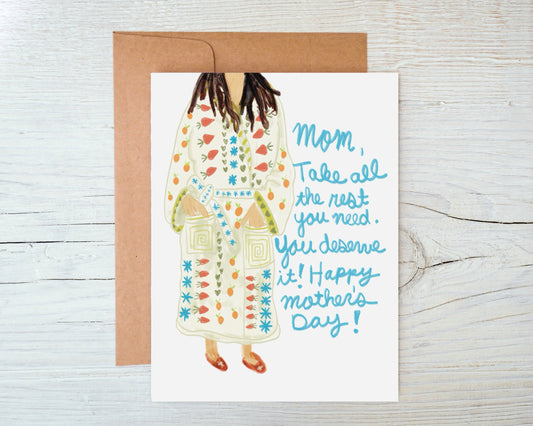 Mom,
Take all
the rest
you need.
You deserve
it! Happy
mother's
Day!